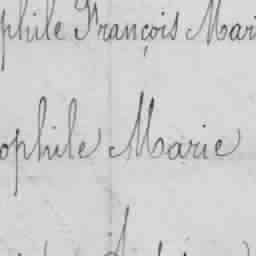 phile François Mari
ophile Marie